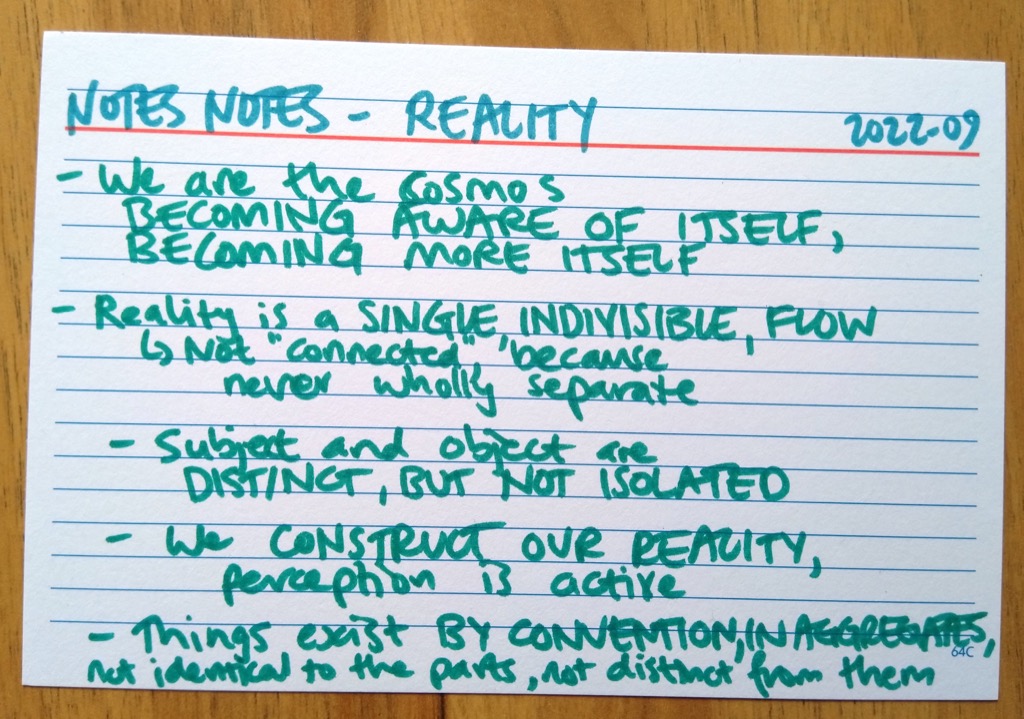 NOTES NOTES - REALITY 2022-09
- We are the cosmos
BECOMING AWARE OF ITSELF,
BECOMING MORE ITSELF
- Reality is a SINGLE, INDIVISIBLE, FLOW
↳ Not "connected", because
never wholly separate
- Subject and object are
DISTINCT, BUT NOT ISOLATED
- We CONSTRUCT OUR REALITY,
perception is active
- Things exist BY CONVENTION, IN AGGREGATES,
64C
not identical to the parts, not distinct from them